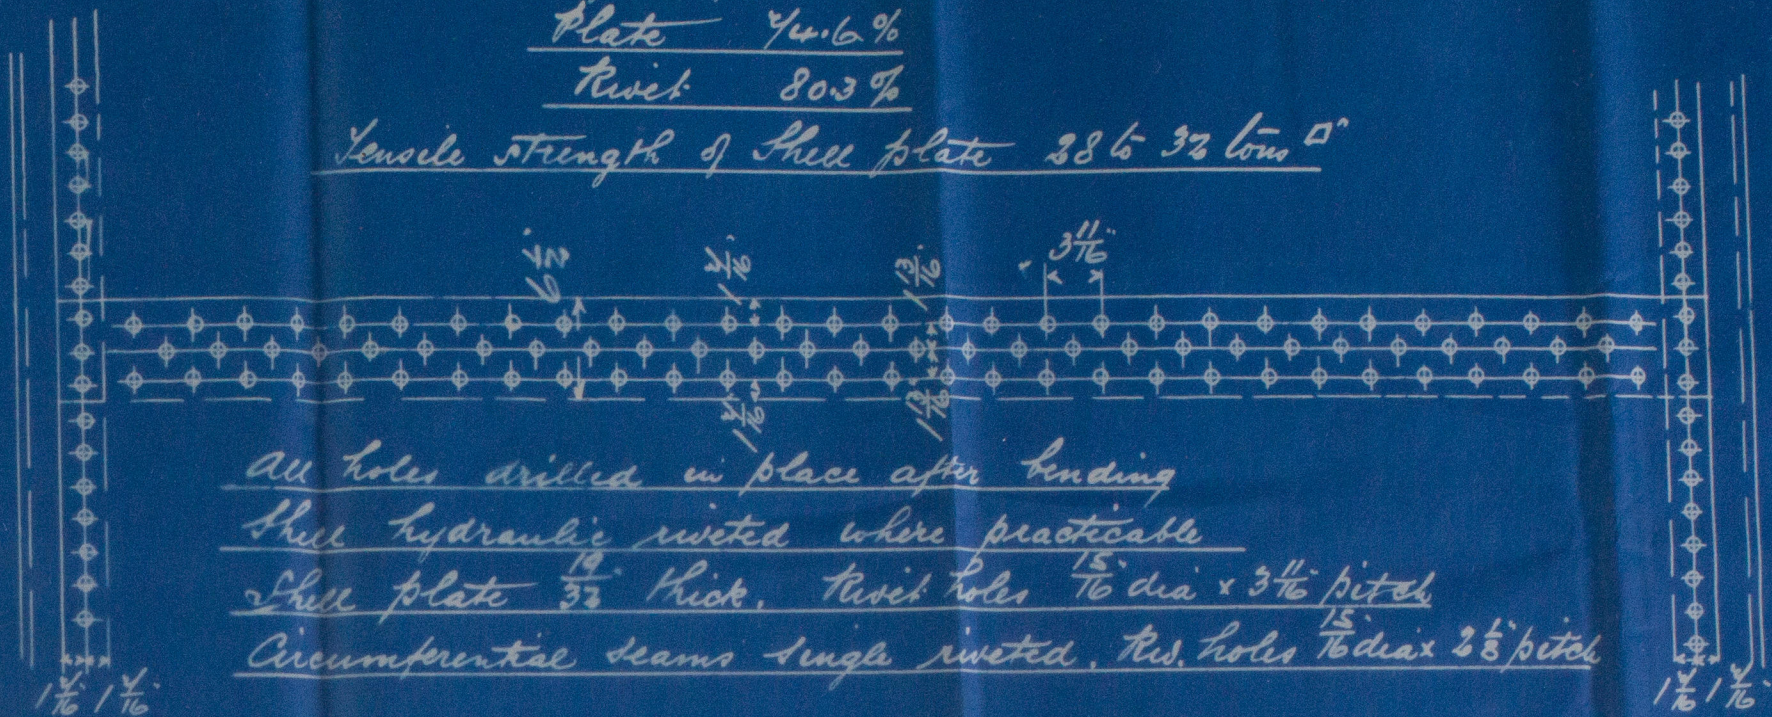 Plate 74.6%
Rivet 80.3%
Tensile strength of Shell plate 28 to 32 tons □"
6 1/2" 1 7/16" 1 13/16" 3 11/16"
1 7/16" 1 13/16"
All holes drilled in place after bending
Shell hydraulic riveted where practicable
Shell plate 19/32" thick. Rivet holes 15/16" dia x 3 11/16" pitch
Circumferential seams single riveted. Riv. holes 15/16" dia x 2 1/8" pitch
1 7/16" 1 7/16" 1 7/16" 1 7/16"